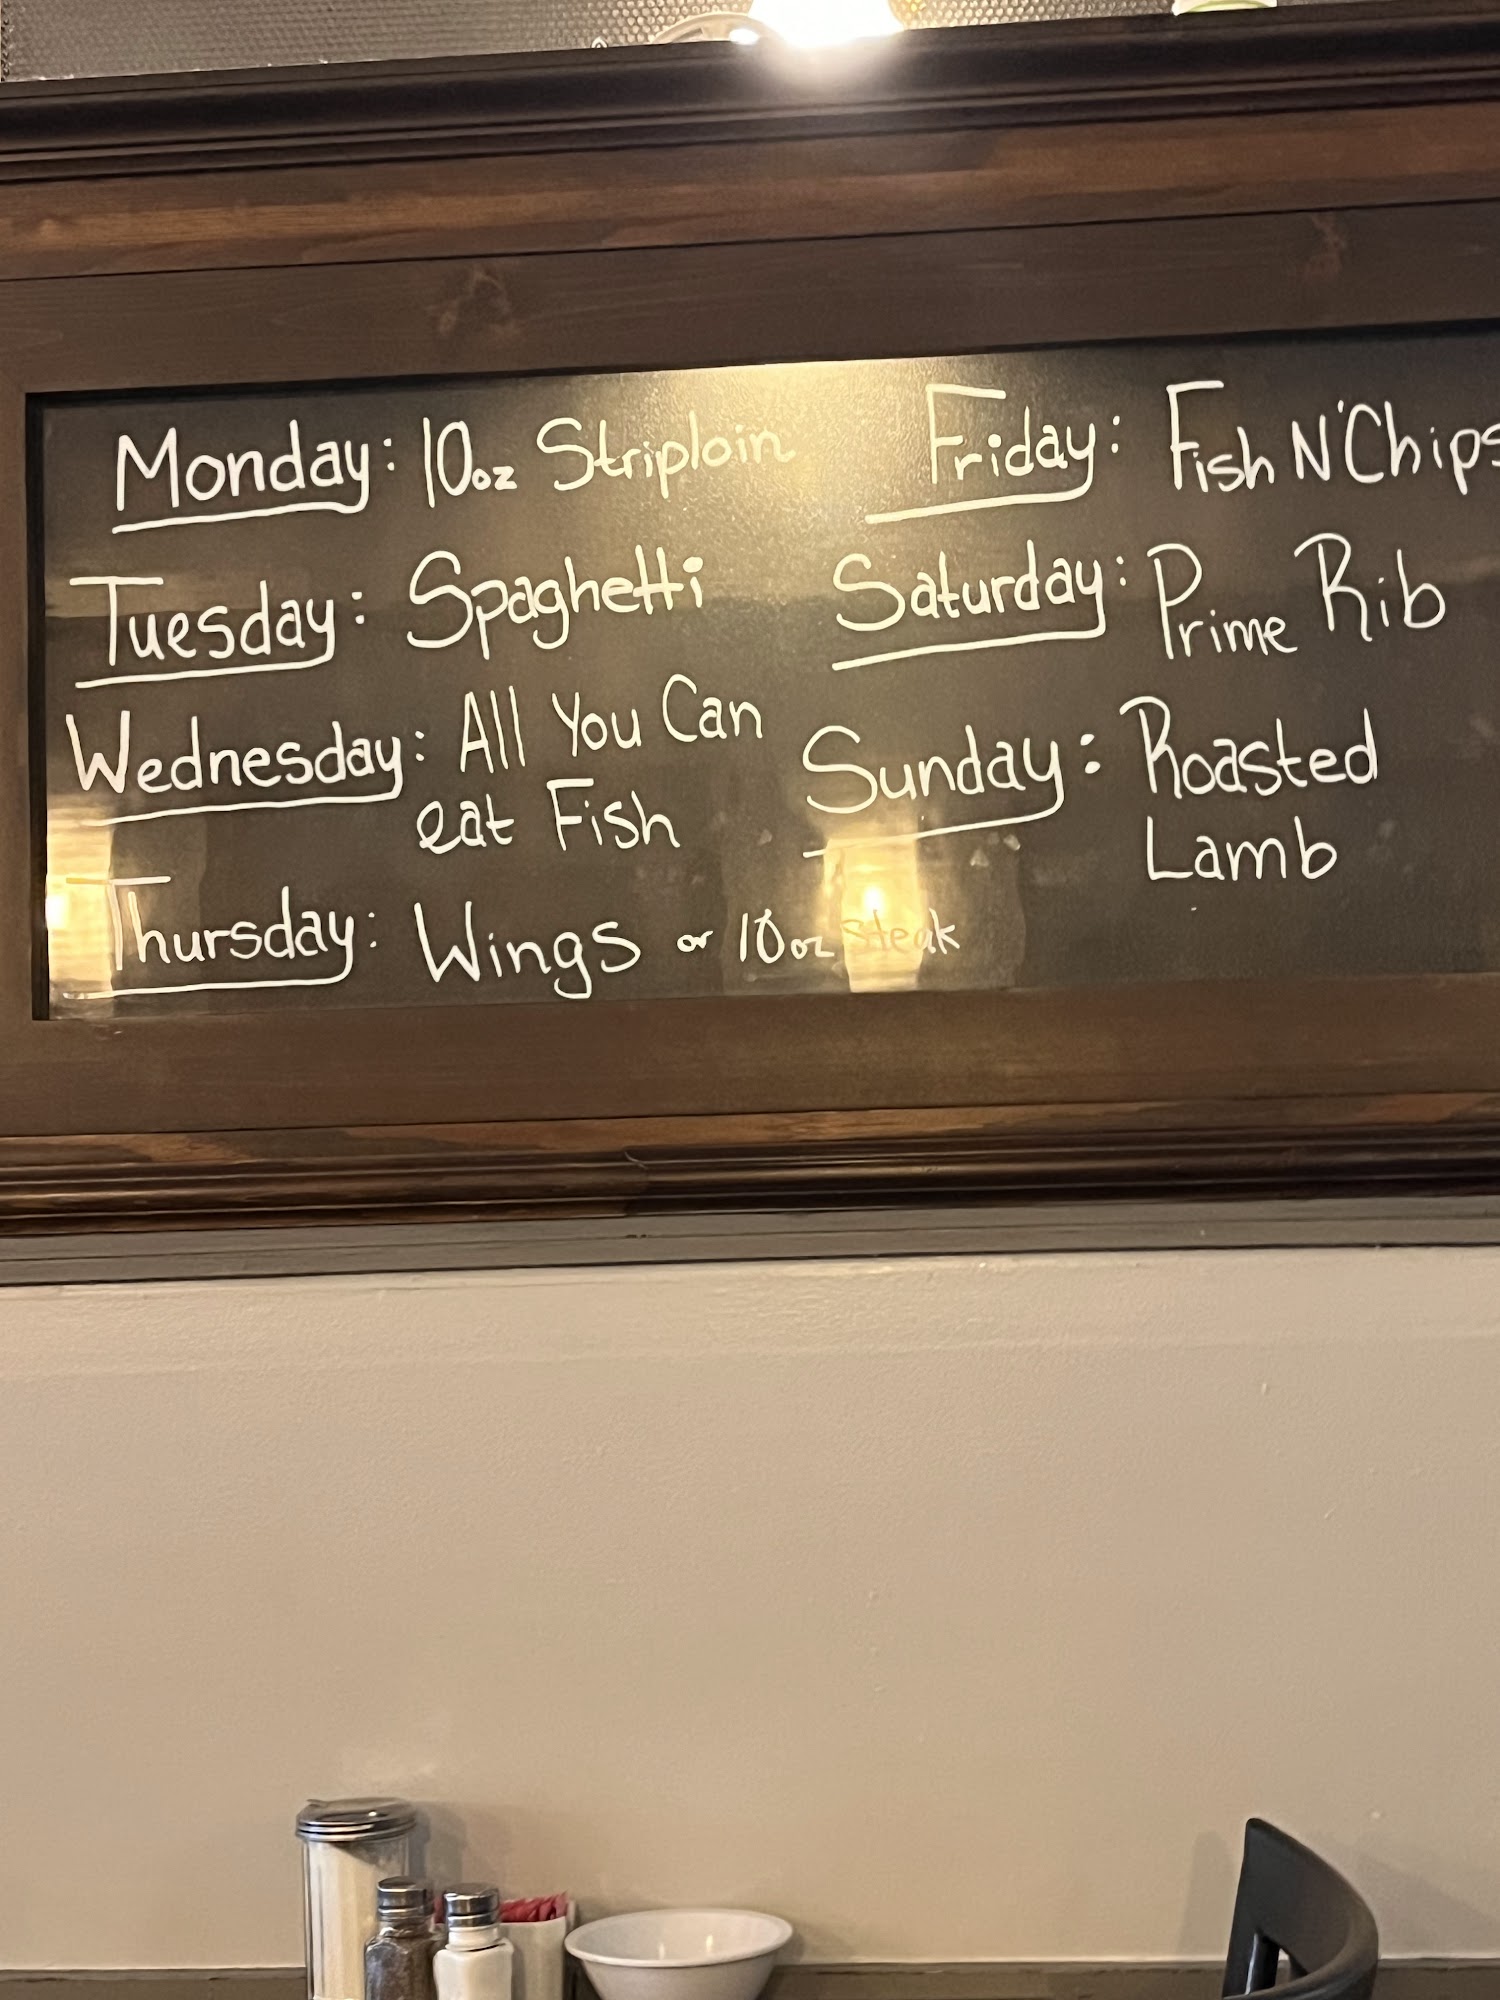 Monday: 10oz Striploin
Tuesday: Spaghetti
Wednesday: All You Can
eat Fish
Thursday: Wings or 10oz Steak
Friday: Fish N' Chips
Saturday: Prime Rib
Sunday: Roasted
Lamb